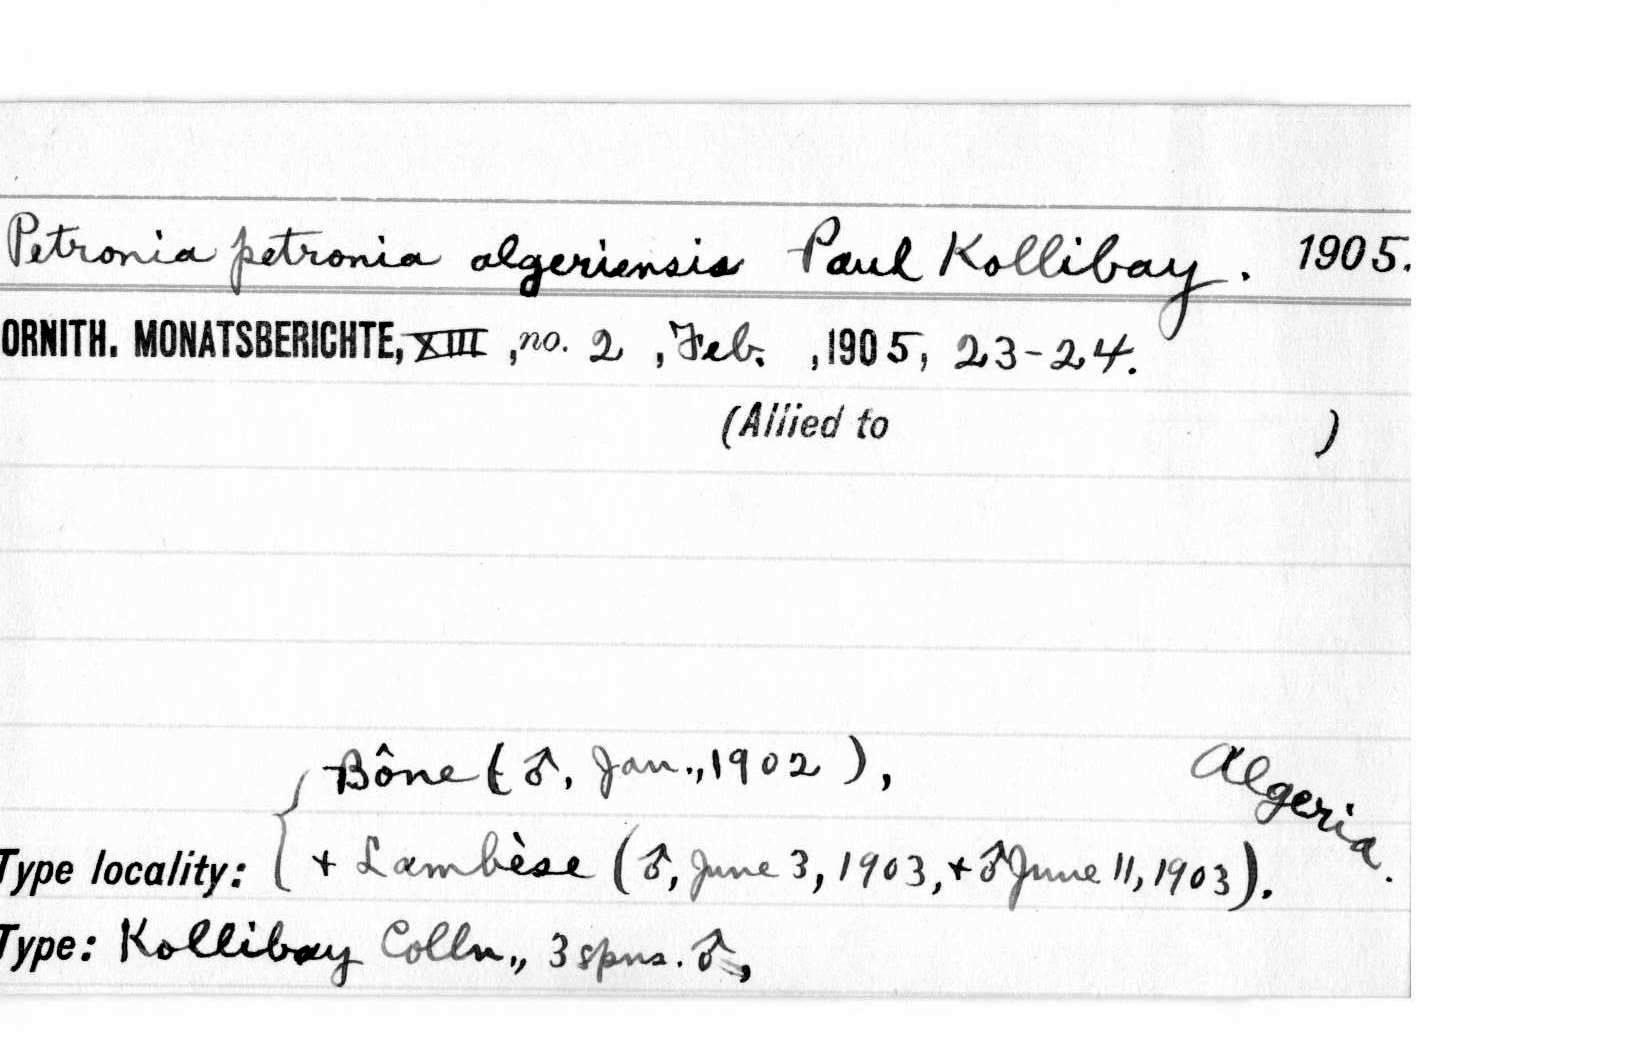 Petronia petronia algeriensis Paul Kollibay. 1905.
ORNITH. MONATSBERICHTE, XIII, no. 2, Feb., 1905, 23-24.
(Allied to )
Bône (♂, Jan., 1902), Algeria.
Type locality: { + Lambèse (♂, June 3, 1903, + ♂ June 11, 1903).
Type: Kollibay Colln., 3 spns. ♂,